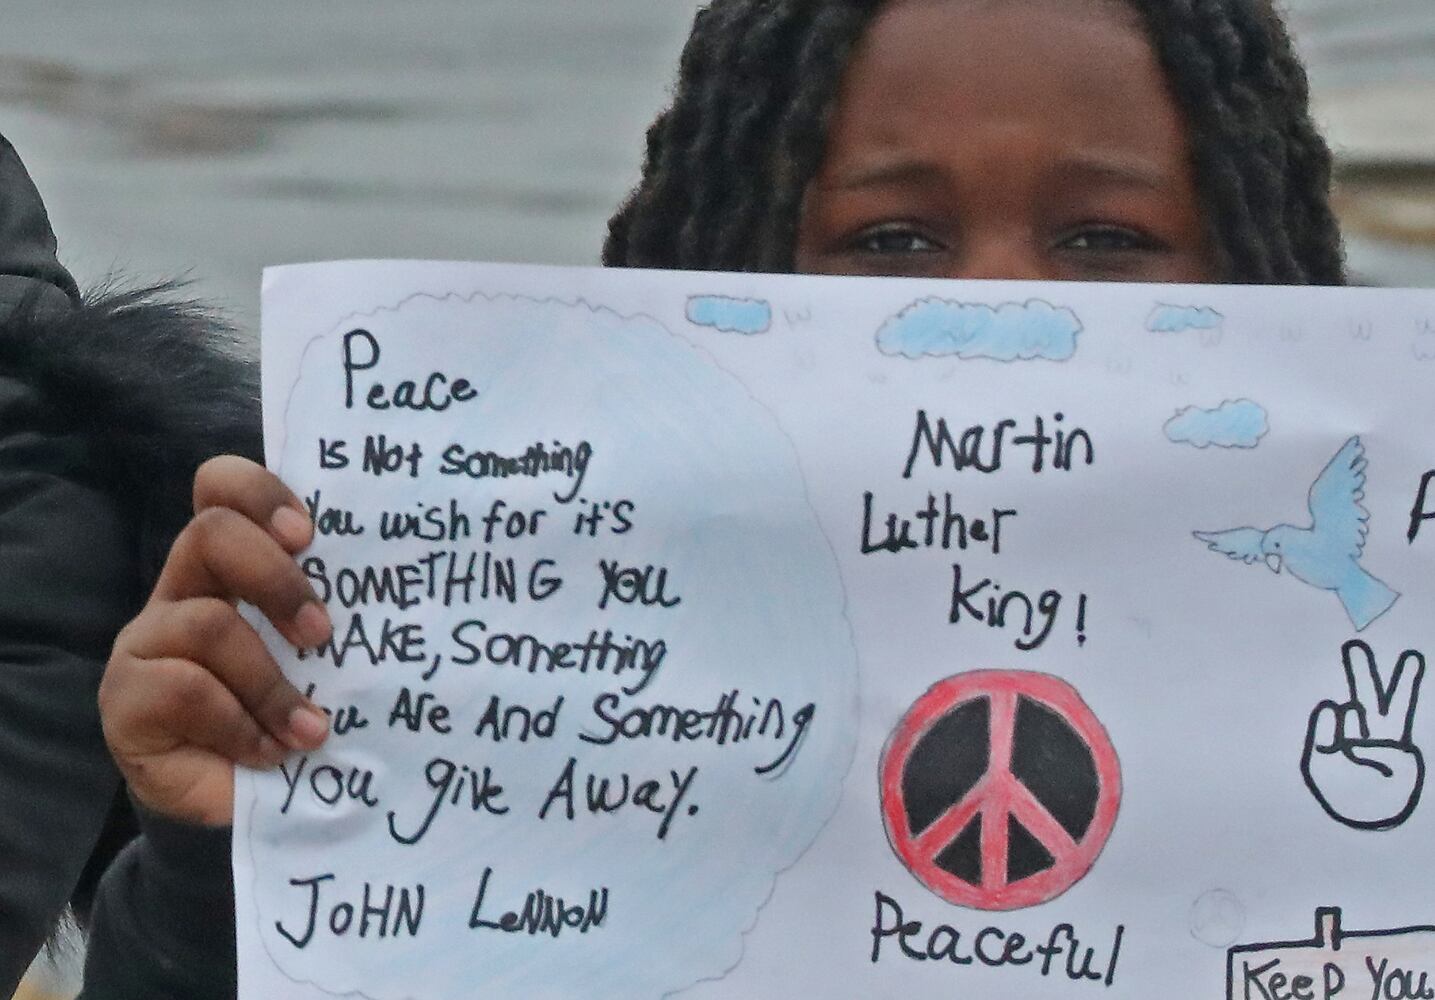 Peace
is Not something
You wish for it's
SOMETHING YOU
MAKE, Something
You Are And Something
You give Away.
JOHN LeNNoN
Martin
Luther
King!
Peaceful
Keep You